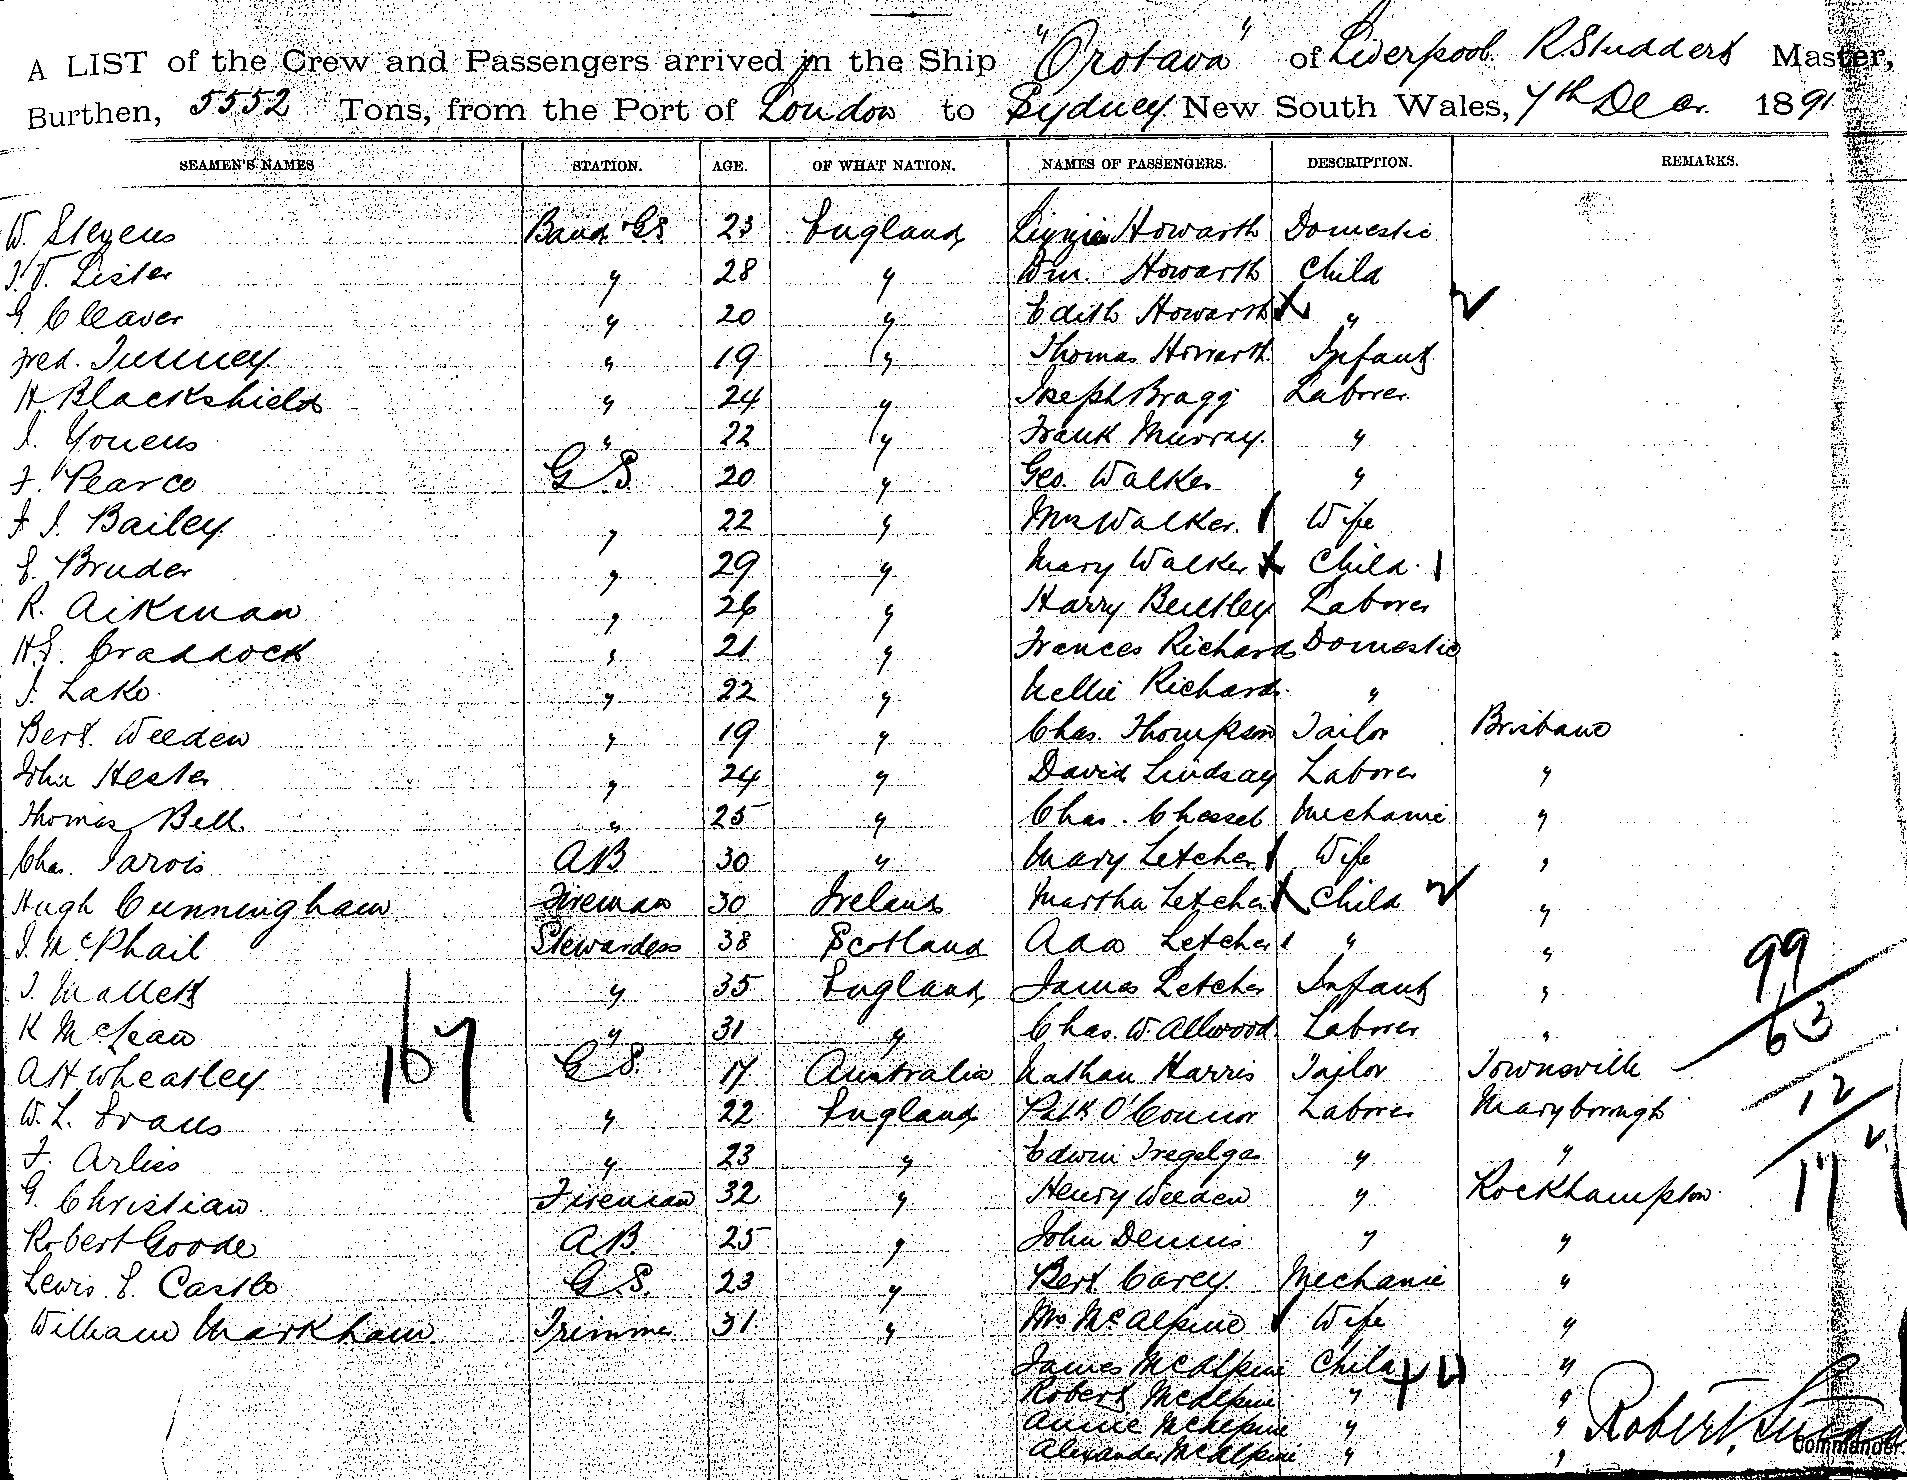 A LIST of the Crew and Passengers arrived in the Ship "Orotava" of Liverpool R Studdert Master,
Burthen, 5552 Tons, from the Port of London to Sydney New South Wales, 7th Decr. 1891
SEAMEN'S NAMES STATION. AGE. OF WHAT NATION. NAMES OF PASSENGERS. DESCRIPTION. REMARKS.
W. Stevens Band GS 23 England Lizzie Howarth Domestic
Lister " 28 " Wm. Howarth Child
G Cleaver " 20 " Edith Howarth "
Fred. Tunney " 19 " Thomas Howarth Infant
H. Blackshields " 24 " Joseph Bragg Laborer
J. Youens " 22 " Frank Murray "
F. Pearce G.S. 20 " Geo. Walker "
F J. Bailey " 22 " Mrs Walker Wife
E. Bruder " 29 " Mary Walker Child
R. Aikman " 26 " Harry Bentley Laborer
H.E. Craddock " 21 " Frances Richards Domestic
J. Lake " 22 " Nellie Richards "
Bert. Weeden " 19 " Chas. Thompson Tailor Brisbane
John Hester " 24 " David Lindsay Laborer "
Thomas Bell " 25 " Chas. Mechanic "
Chas. Jarvis AB 30 " Mary Letcher Wife "
Hugh Cunningham Fireman 30 Ireland Martha Letcher Child "
J. McPhail Stewardess 38 Scotland Ada Letcher " "
J. Mallett " 35 England James Letcher Infant "
K McLean " 31 " Chas. W. Allwood Laborer "
A H Wheatley G S. 17 Australia Nathan Harris Tailor Townsville
W. L. Evans " 22 England Patk O'Connor Laborer Maryborough
F. Arliss " 23 " Edwin Tregelga " "
G. Christian Fireman 32 " Henry Weeden " Rockhampton
Robert Goode AB. 25 " John Dennis " "
Lewis E. Castle G S. 23 " Bert Carey Mechanic "
William Markham Trimmer 31 " Mrs McAlpine Wife "
James McAlpine Child "
Robert McAlpine " "
Annie McAlpine " "
Alexander McAlpine " "
167
99
63
12
17
Robert
Commander.